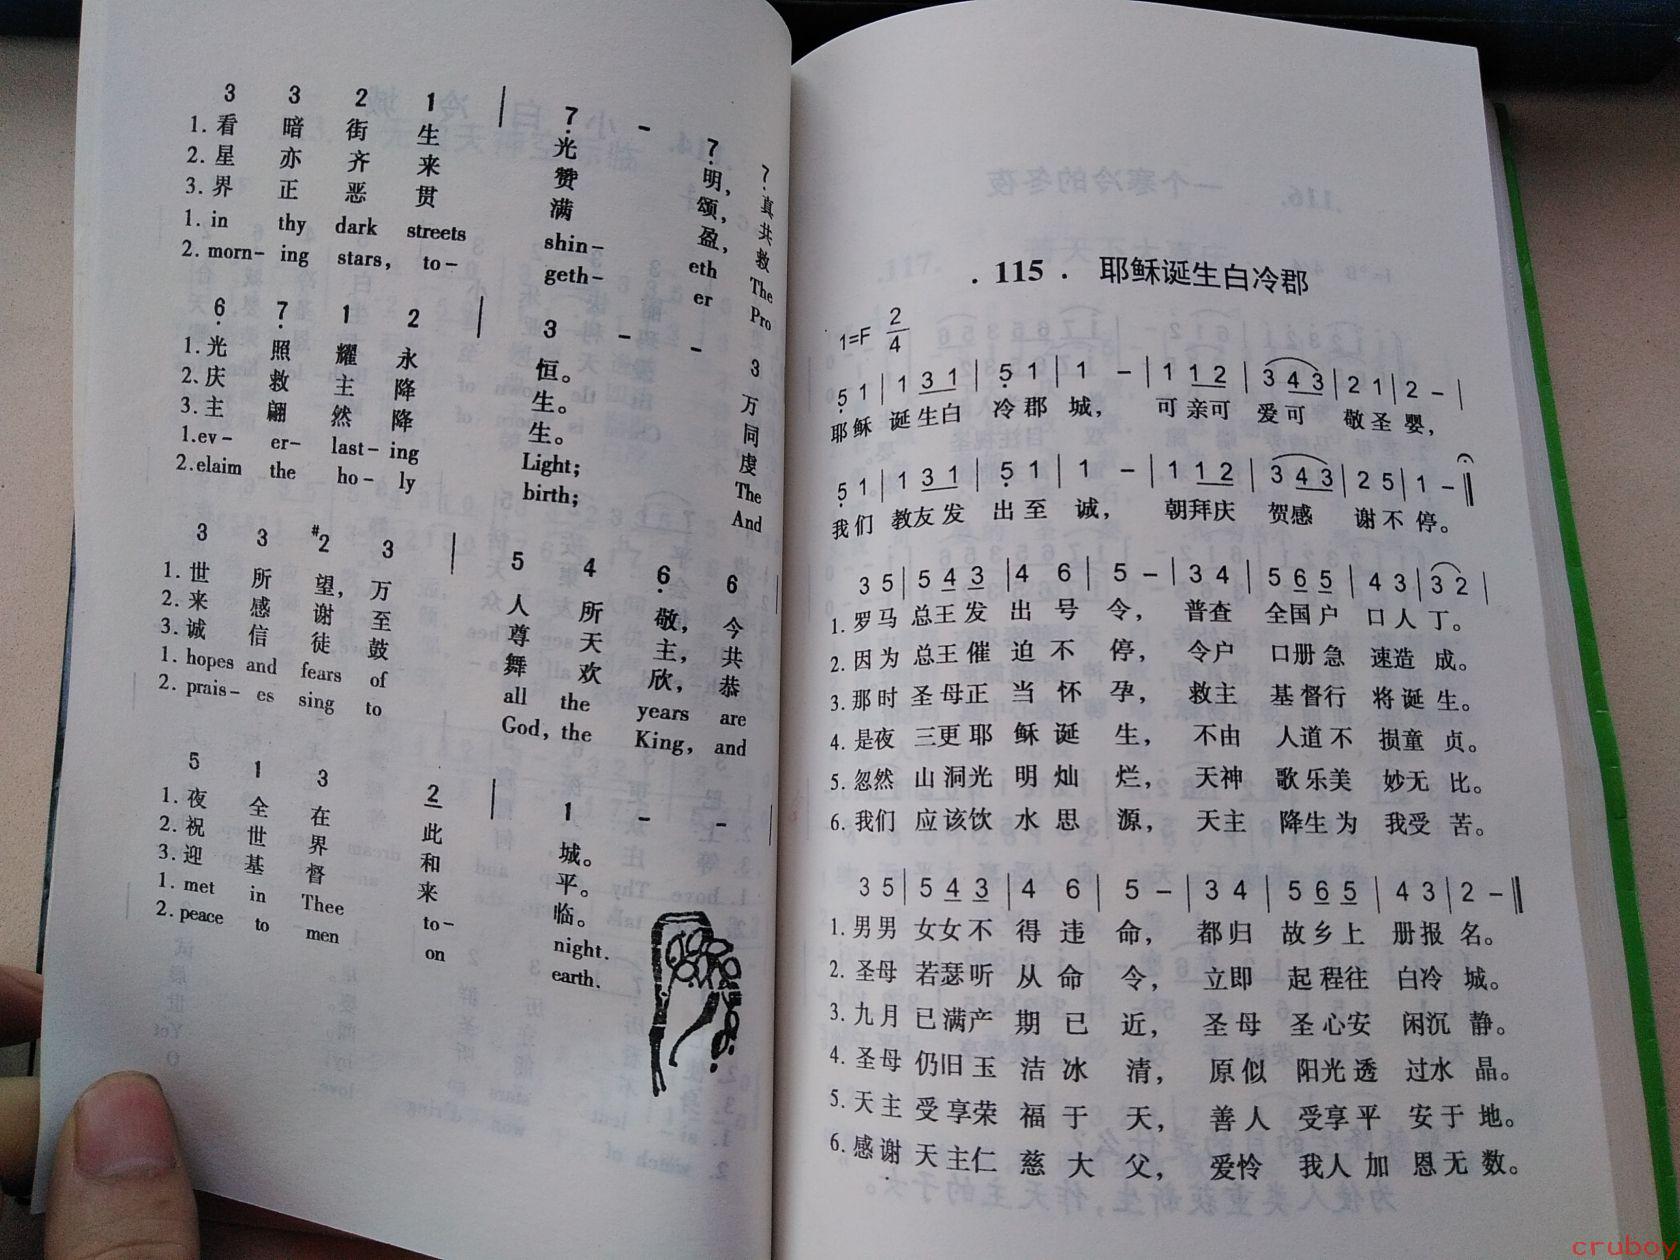 3 3 2 1 | 7 - 7 7
1.看 暗 街 生 光 明, 真
2.星 亦 齐 来 赞 颂, 共
3.界 正 恶 贯 满 盈, 救
1. in thy dark streets shin- eth The
2. morn- ing stars, to- geth- er Pro
6 7 1 2 | 3 - - 3
1.光 照 耀 永 恒。 万
2.庆 救 主 降 生。 同
3.主 翩 然 降 生。 虔
1.ev- er- last- ing Light; The
2.elaim the ho- ly birth; And
3 3 #2 3 | 5 4 6 6
1.世 所 望, 万 人 所 敬, 今
2.来 感 谢 至 尊 天 主, 共
3.诚 信 徒 鼓 舞 欢 欣, 恭
1. hopes and fears of all the years are
2. prais- es sing to God, the King, and
5 1 3 2 | 1 - -
1.夜 全 在 此 城。
2.祝 世 界 和 平。
3.迎 基 督 来 临。
1. met in Thee to- night.
2. peace to men on earth.
. 115 . 耶稣诞生白冷郡
1=F 2/4
5 1 | 1 3 1 | 5 1 | 1 - | 1 1 2 | 3 4 3 | 2 1 | 2 - |
耶稣 诞生白 冷郡 城, 可亲可 爱可 敬圣 婴,
5 1 | 1 3 1 | 5 1 | 1 - | 1 1 2 | 3 4 3 | 2 5 | 1 - ‖
我们 教友发 出至 诚, 朝拜庆 贺感 谢不 停。
3 5 | 5 4 3 | 4 6 | 5 - | 3 4 | 5 6 5 | 4 3 | 3 2 |
1.罗马 总王发 出号 令, 普查 全国户 口人 丁。
2.因为 总王催 迫不 停, 令户 口册急 速造 成。
3.那时 圣母正 当怀 孕, 救主 基督行 将诞 生。
4.是夜 三更耶 稣诞 生, 不由 人道不 损童 贞。
5.忽然 山洞光 明灿 烂, 天神 歌乐美 妙无 比。
6.我们 应该饮 水思 源, 天主 降生为 我受 苦。
3 5 | 5 4 3 | 4 6 | 5 - | 3 4 | 5 6 5 | 4 3 | 2 - ‖
1.男男 女女不 得违 命, 都归 故乡上 册报 名。
2.圣母 若瑟听 从命 令, 立即 起程往 白冷 城。
3.九月 已满产 期已 近, 圣母 圣心安 闲沉 静。
4.圣母 仍旧玉 洁冰 清, 原似 阳光透 过水 晶。
5.天主 受享荣 福于 天, 善人 受享平 安于 地。
6.感谢 天主仁 慈大 父, 爱怜 我人加 恩无 数。
cruboy